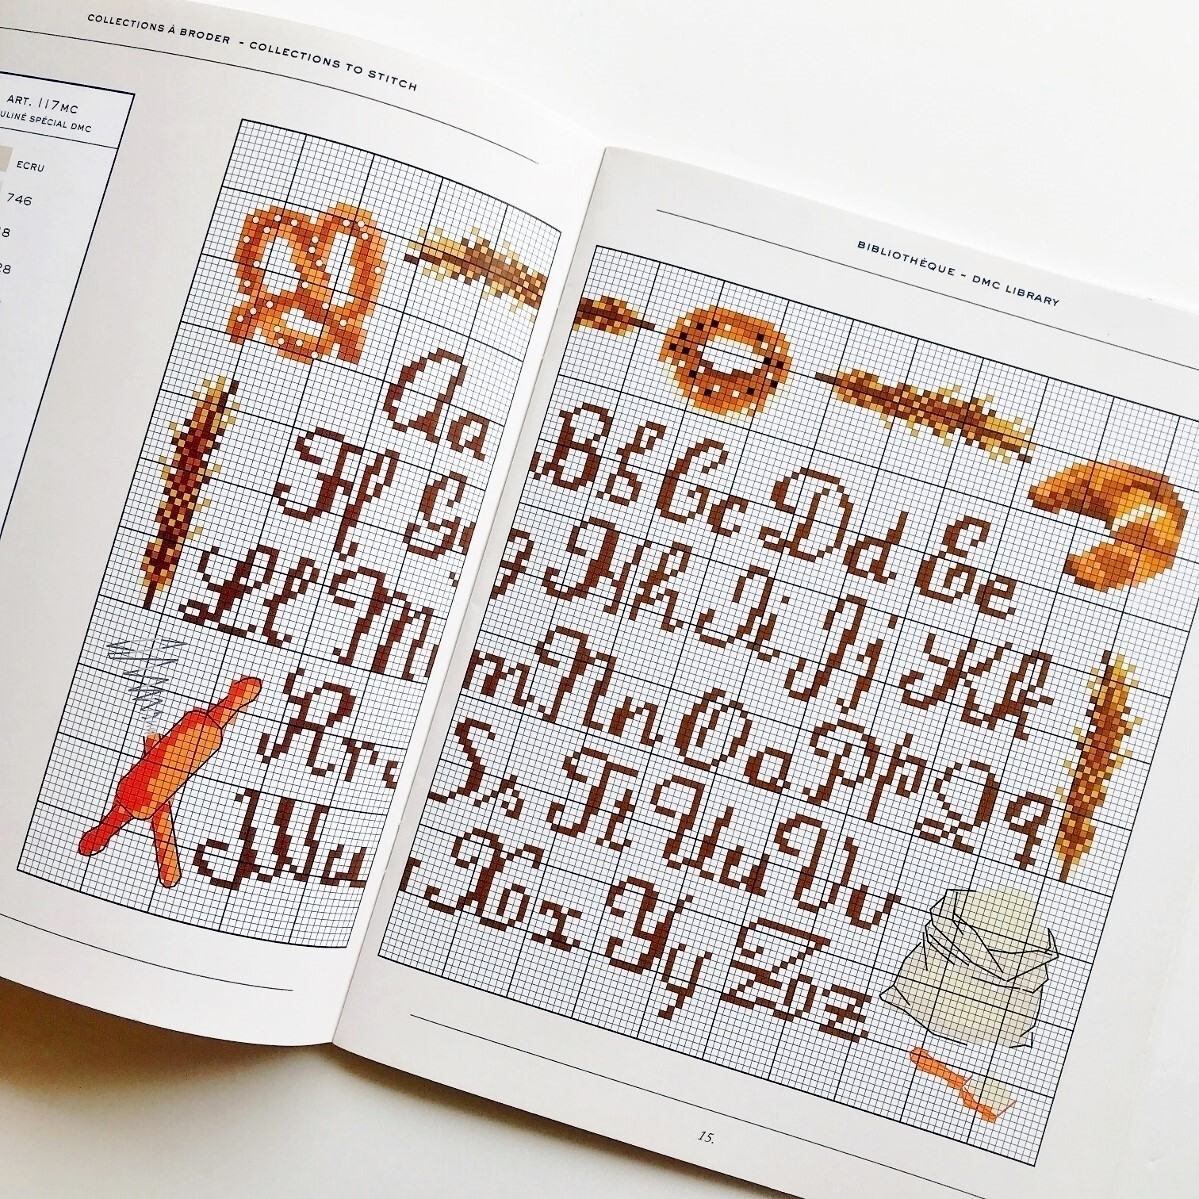 COLLECTIONS À BRODER - COLLECTIONS TO STITCH
ART. 117MC
SPÉCIAL DMC
ECRU
746
BIBLIOTHÈQUE - DMC LIBRARY
Aa
Bb Cc Dd Ee
Ff G
Hh Ii Jj Kk
Ll M
m Nn Oo Pp Qq
Rr
Ss Tt Uu Vv
Ww
Xx Yy Zz
15.